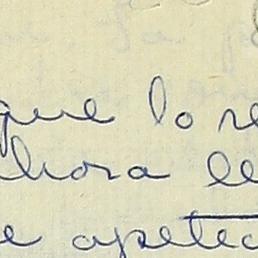 que lo re
ahora le
e apetec